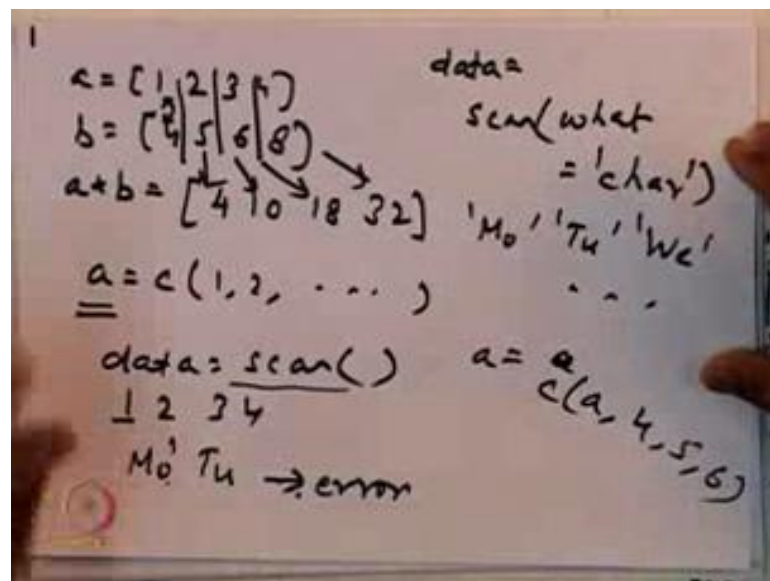 1
a = [1 | 2 | 3 | 4]
b = [4 | 5 | 6 | 8]
a * b = [4 10 18 32]
a = c(1, 2, ....)
data = scan()
1 2 3 4
Mo' Tu → error
data =
scan(what
= 'char')
'Mo' 'Tu' 'We'
...
a =
c(a, 4, 5, 6)